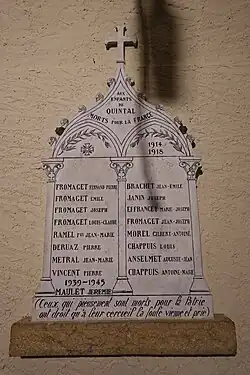 AUX
ENFANTS DE
QUINTAL
MORTS POUR LA FRANCE
1914
1918
FROMAGET FERNAND PIERRE
FROMAGET EMILE
FROMAGET JOSEPH
FROMAGET LOUIS-CLAUDE
RAMEL JEAN-MARIE
DERUAZ PIERRE
METRAL JEAN-MARIE
VINCENT PIERRE
1939-1945
MAULET JEREMIE
BRACHET JEAN-EMILE
JANIN JOSEPH
EFFRANCEY MARIE-JOSEPH
FROMAGET JEAN-JOSEPH
MOREL GILBERT-ANTOINE
CHAPPUIS LOUIS
ANSELMET
CHAPPUIS ANTOINE-MARIE
(Ceux qui pieusement sont morts pour la Patrie
ont droit qu'à leur cercueil la foule vienne et prie)